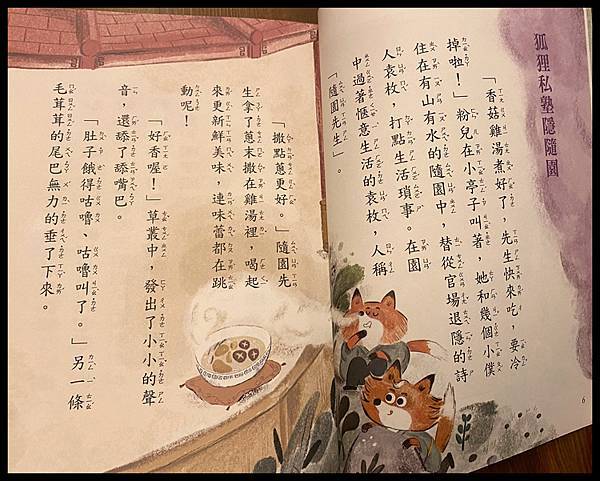 狐狸私塾隱隨園
「香菇雞湯煮好了,先生快來吃,要冷
掉啦!」粉兒在小亭子叫著,她和幾個小僕
住在有山有水的隨園中,替從官場退隱的詩
人袁枚,打點生活瑣事。在園
中過著愜意生活的袁枚,人稱
「隨園先生」。
6
「撒點蔥更好。」隨園先
生拿了蔥末撒在雞湯裡,喝起
來更新鮮美味,連味蕾都在跳
動呢!
「好香喔!」草叢中,發出了小小的聲
音,還舔了舔嘴巴。
「肚子餓得咕嚕、咕嚕叫了。」另一條
毛茸茸的尾巴無力的垂了下來。